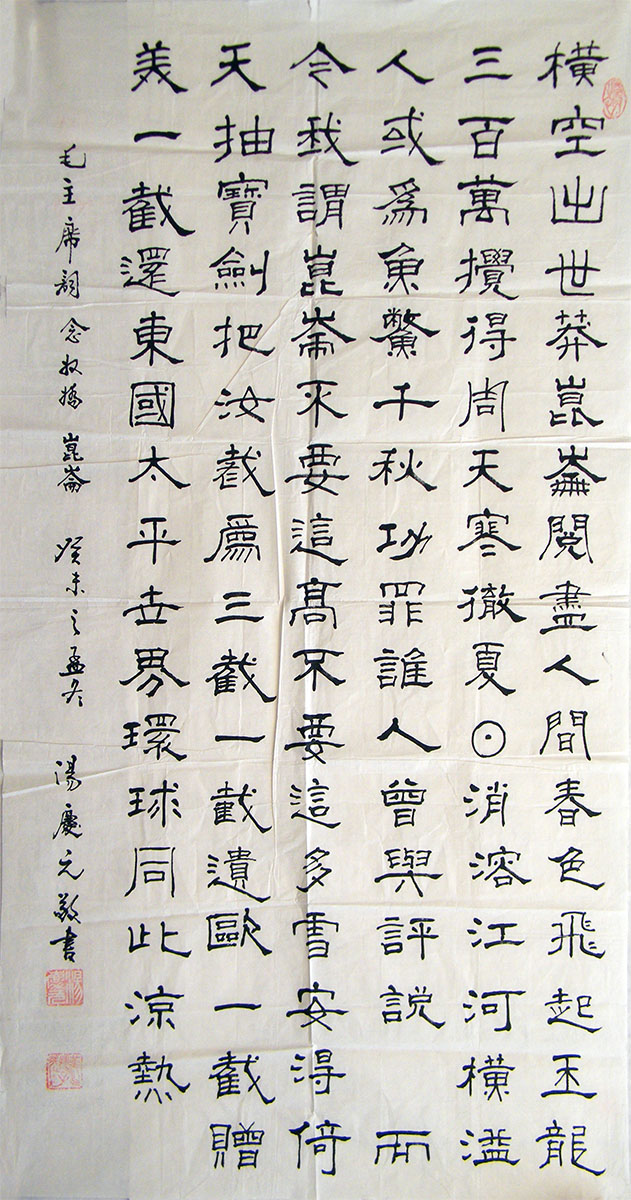 橫空出世莽崑崙閱盡人間春色飛起玉龍
三百萬攪得周天寒徹夏日消溶江河橫溢
人或爲魚鱉千秋功罪誰人曾與評説 而
今我謂崑崙不要這高不要這多雪安得倚
天抽寶劍把汝截爲三截一截遺歐一截贈
美一截還東國太平世界環球同此涼熱
毛主席詞 念奴嬌 崑崙 癸未之孟冬 湯慶元敬書